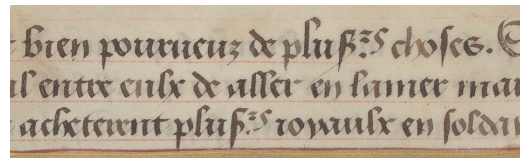 bien pourueuz de plus̄rs choses.
entre eulx de aller en lamer
acheterent plus̄rs ioyaulx en soldan